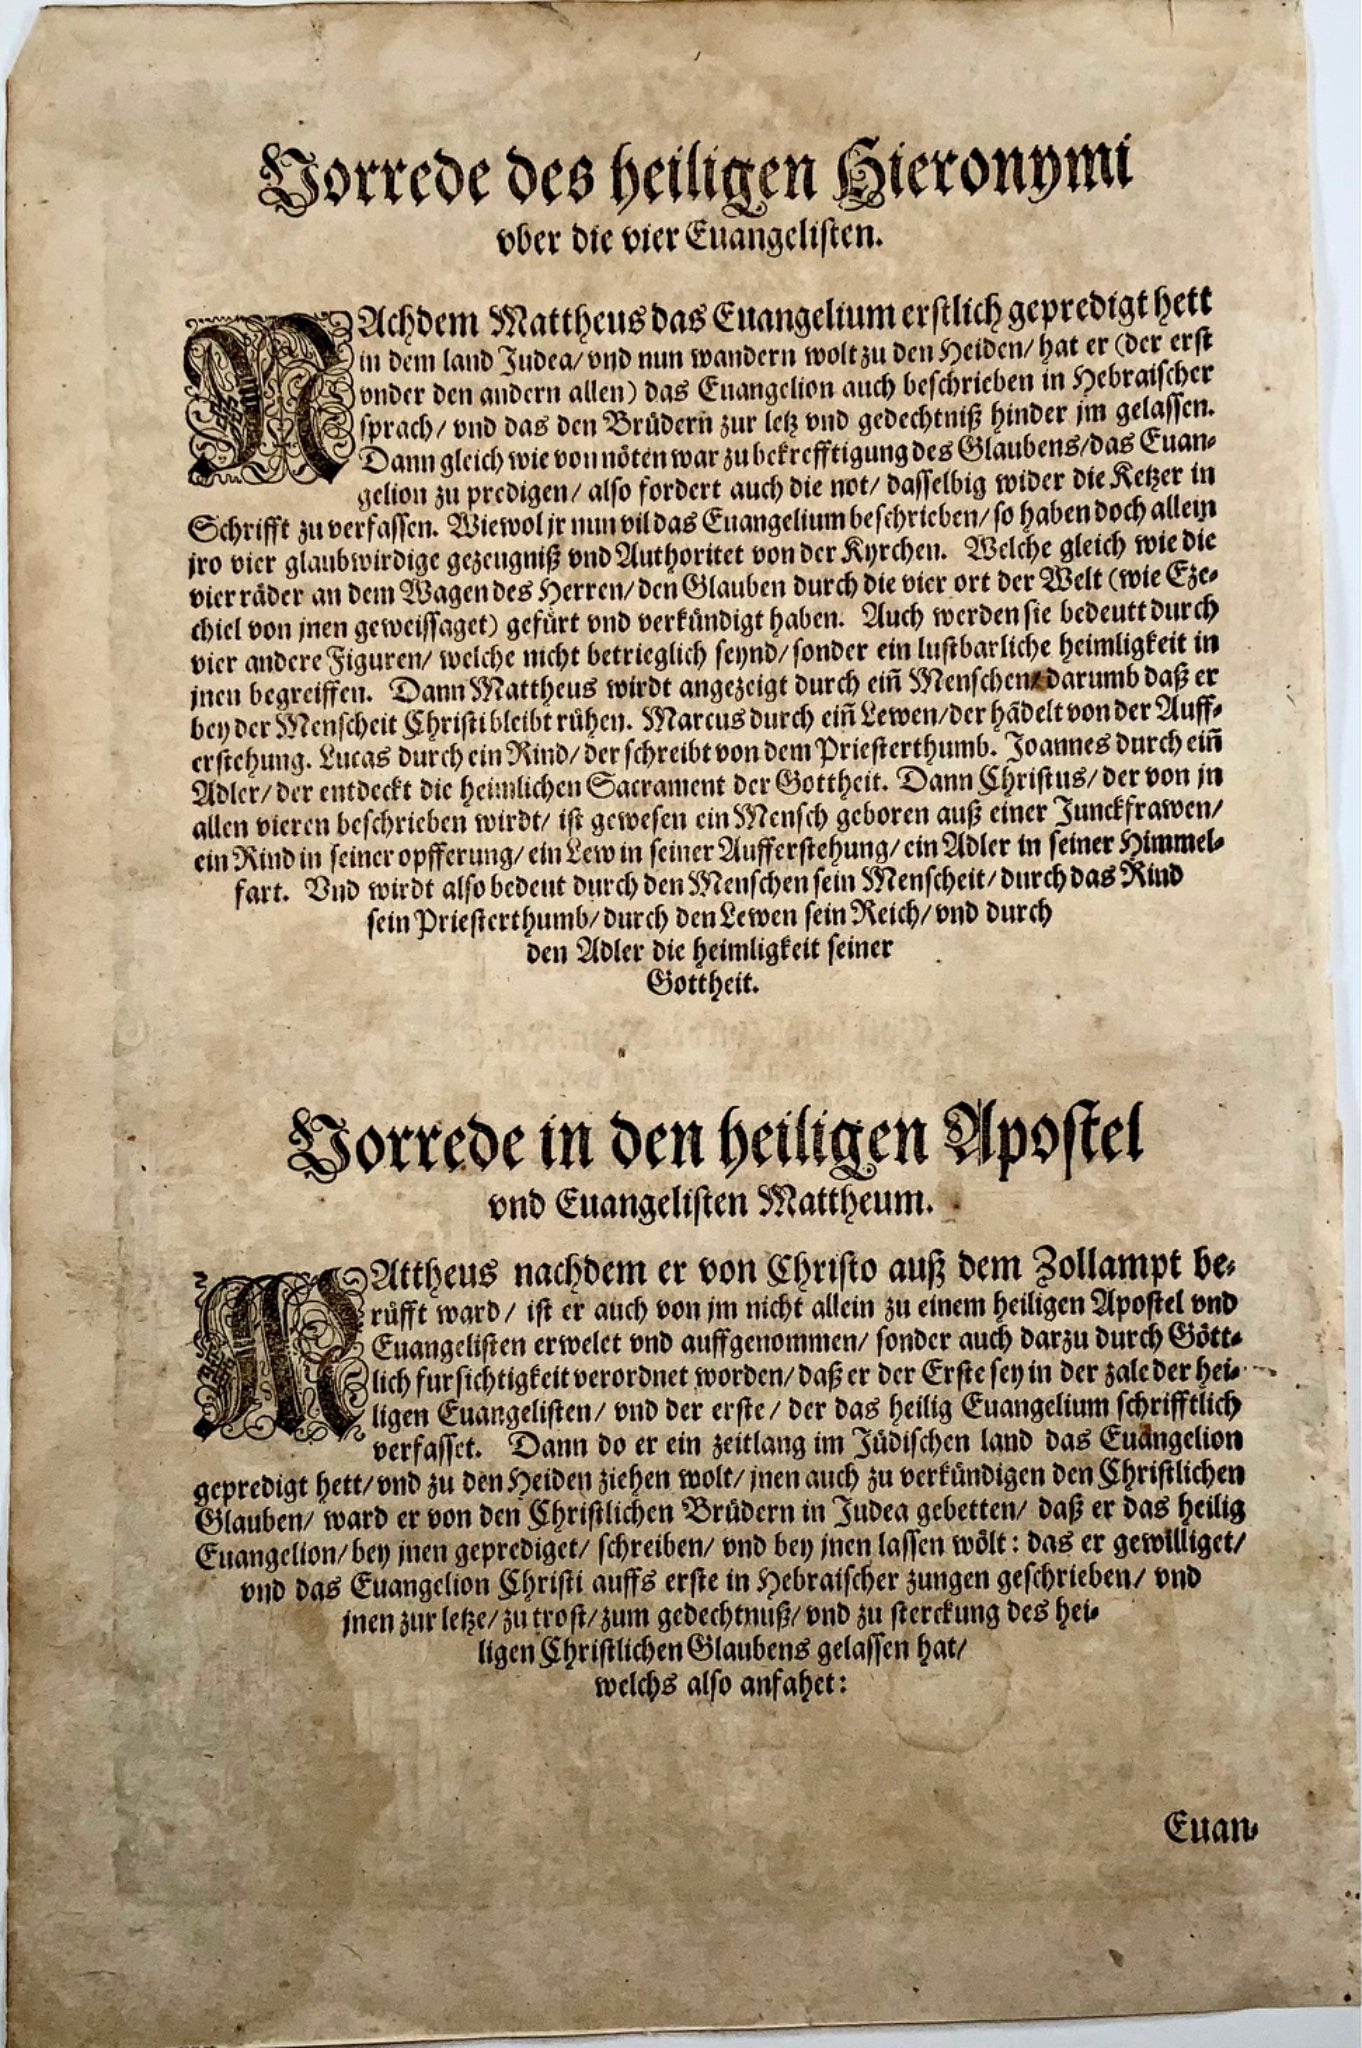 Vorrede des heiligen Hieronymi
vber die vier Euangelisten.
NAchdem Mattheus das Euangelium erstlich gepredigt hett
in dem land Judea/ vnd nun wandern wolt zu den Heiden/ hat er (der erst
vnder den andern allen) das Euangelion auch beschrieben in Hebraischer
sprach/ vnd das den Brüdern zur letz vnd gedechtniß hinder jm gelassen.
Dann gleich wie von nöten war zu bekrefftigung des Glaubens/ das Euan-
gelion zu predigen/ also fordert auch die not/ dasselbig wider die Ketzer in
Schrifft zu verfassen. Wiewol jr nun vil das Euangelium beschrieben/ so haben doch allein
jro vier glaubwirdige gezeugniß vnd Authoritet von der Kyrchen. Welche gleich wie die
vier räder an dem Wagen des Herren/ den Glauben durch die vier ort der Welt (wie Eze-
chiel von jnen geweissaget) gefürt vnd verkündigt haben. Auch werden sie bedeutt durch
vier andere Figuren/ welche nicht betrieglich seynd/ sonder ein lustbarliche heimligkeit in
jnen begreiffen. Dann Mattheus wirdt angezeigt durch einñ Menschen/ darumb daß er
bey der Menscheit Christi bleibt rühen. Marcus durch einñ Lewen/ der hãdelt von der Auff-
erstehung. Lucas durch ein Rind/ der schreibt von dem Priesterthumb. Joannes durch einñ
Adler/ der entdeckt die heimlichen Sacrament der Gottheit. Dann Christus/ der von jn
allen vieren beschrieben wirdt/ ist gewesen ein Mensch geboren auß einer Junckfrawen/
ein Rind in seiner opfferung/ ein Lew in seiner Aufferstehung/ ein Adler in seiner Himmel-
fart. Vnd wirdt also bedeut durch den Menschen sein Menscheit/ durch das Rind
sein Priesterthumb/ durch den Lewen sein Reich/ vnd durch
den Adler die heimligkeit seiner
Gottheit.
Vorrede in den heiligen Apostel
vnd Euangelisten Mattheum.
MAttheus nachdem er von Christo auß dem Zollampt be-
rüfft ward/ ist er auch von jm nicht allein zu einem heiligen Apostel vnd
Euangelisten erwelet vnd auffgenommen/ sonder auch darzu durch Gött-
lich fursichtigkeit verordnet worden/ daß er der Erste sey in der zale der hei-
ligen Euangelisten/ vnd der erste/ der das heilig Euangelium schrifftlich
verfasset. Dann do er ein zeitlang im Jüdischen land das Euangelion
gepredigt hett/ vnd zu den Heiden ziehen wolt/ jnen auch zu verkündigen den Christlichen
Glauben/ ward er von den Christlichen Brüdern in Judea gebetten/ daß er das heilig
Euangelion/ bey jnen geprediget/ schreiben/ vnd bey jnen lassen wölt: das er gewilliget/
vnd das Euangelion Christi auffs erste in Hebraischer zungen geschrieben/ vnd
jnen zur letze/ zu trost/ zum gedechtnuß/ vnd zu sterckung des hei-
ligen Christlichen Glaubens gelassen hat/
welchs also anfahet:
Euan-